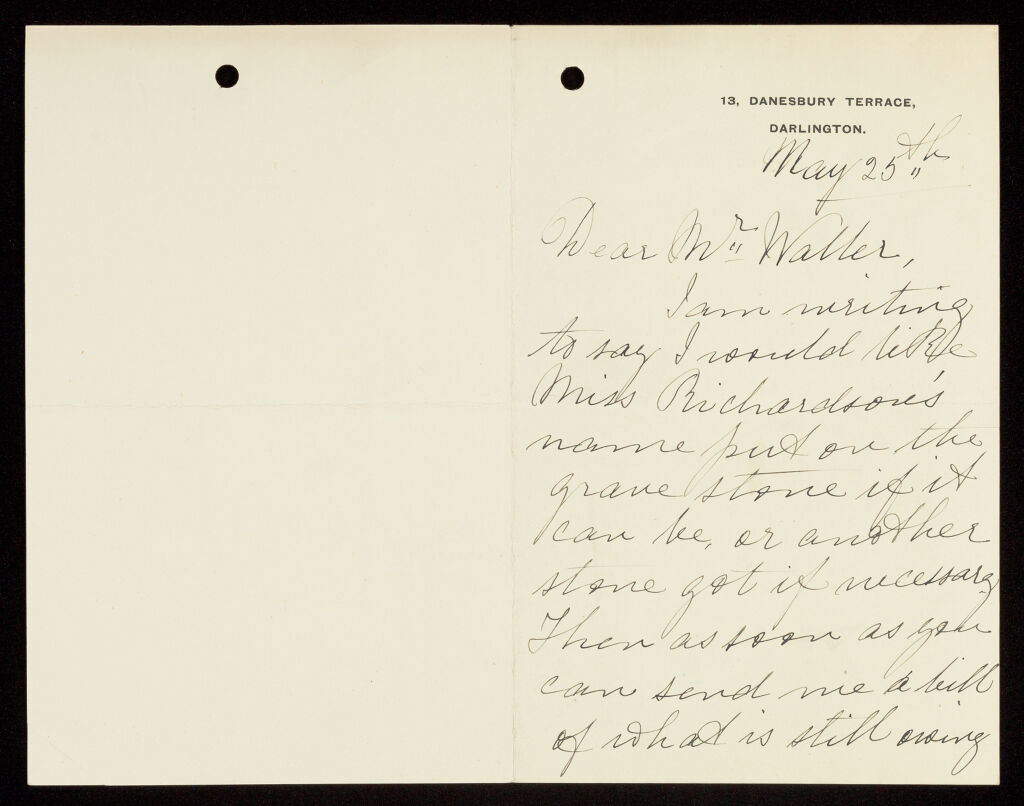 13, DANESBURY TERRACE,
DARLINGTON.
May 25th
Dear Mr Waller,
I am writing
to say I would like
Miss Richardson's
name put on the
grave stone if it
can be, or another
stone got if necessary
Then as soon as you
can send me a bill
of what is still owing